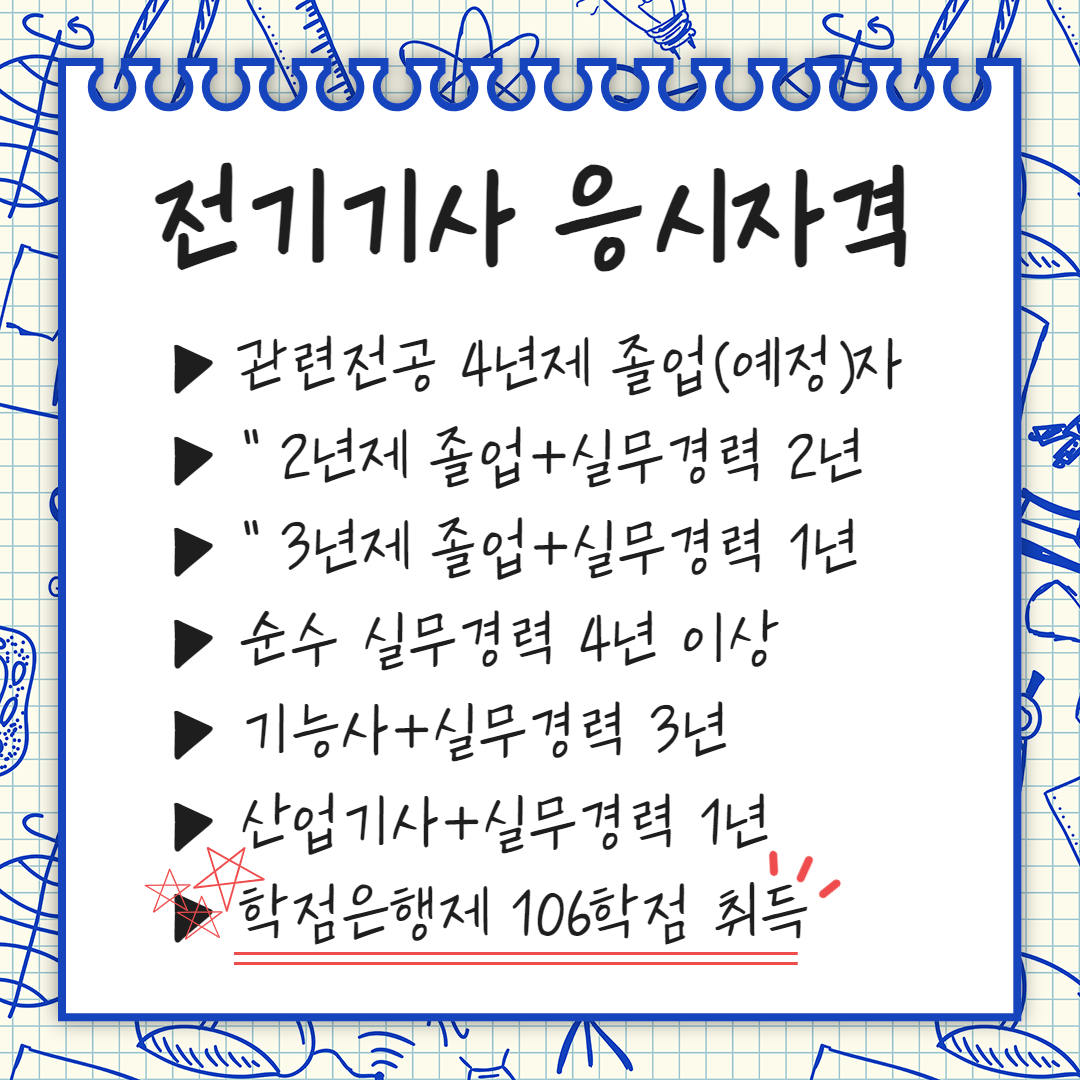 전기기사 응시자격
▶ 관련전공 4년제 졸업(예정)자
▶ " 2년제 졸업+실무경력 2년
▶ " 3년제 졸업+실무경력 1년
▶ 순수 실무경력 4년 이상
▶ 기능사+실무경력 3년
▶ 산업기사+실무경력 1년
▶ 학점은행제 106학점 취득